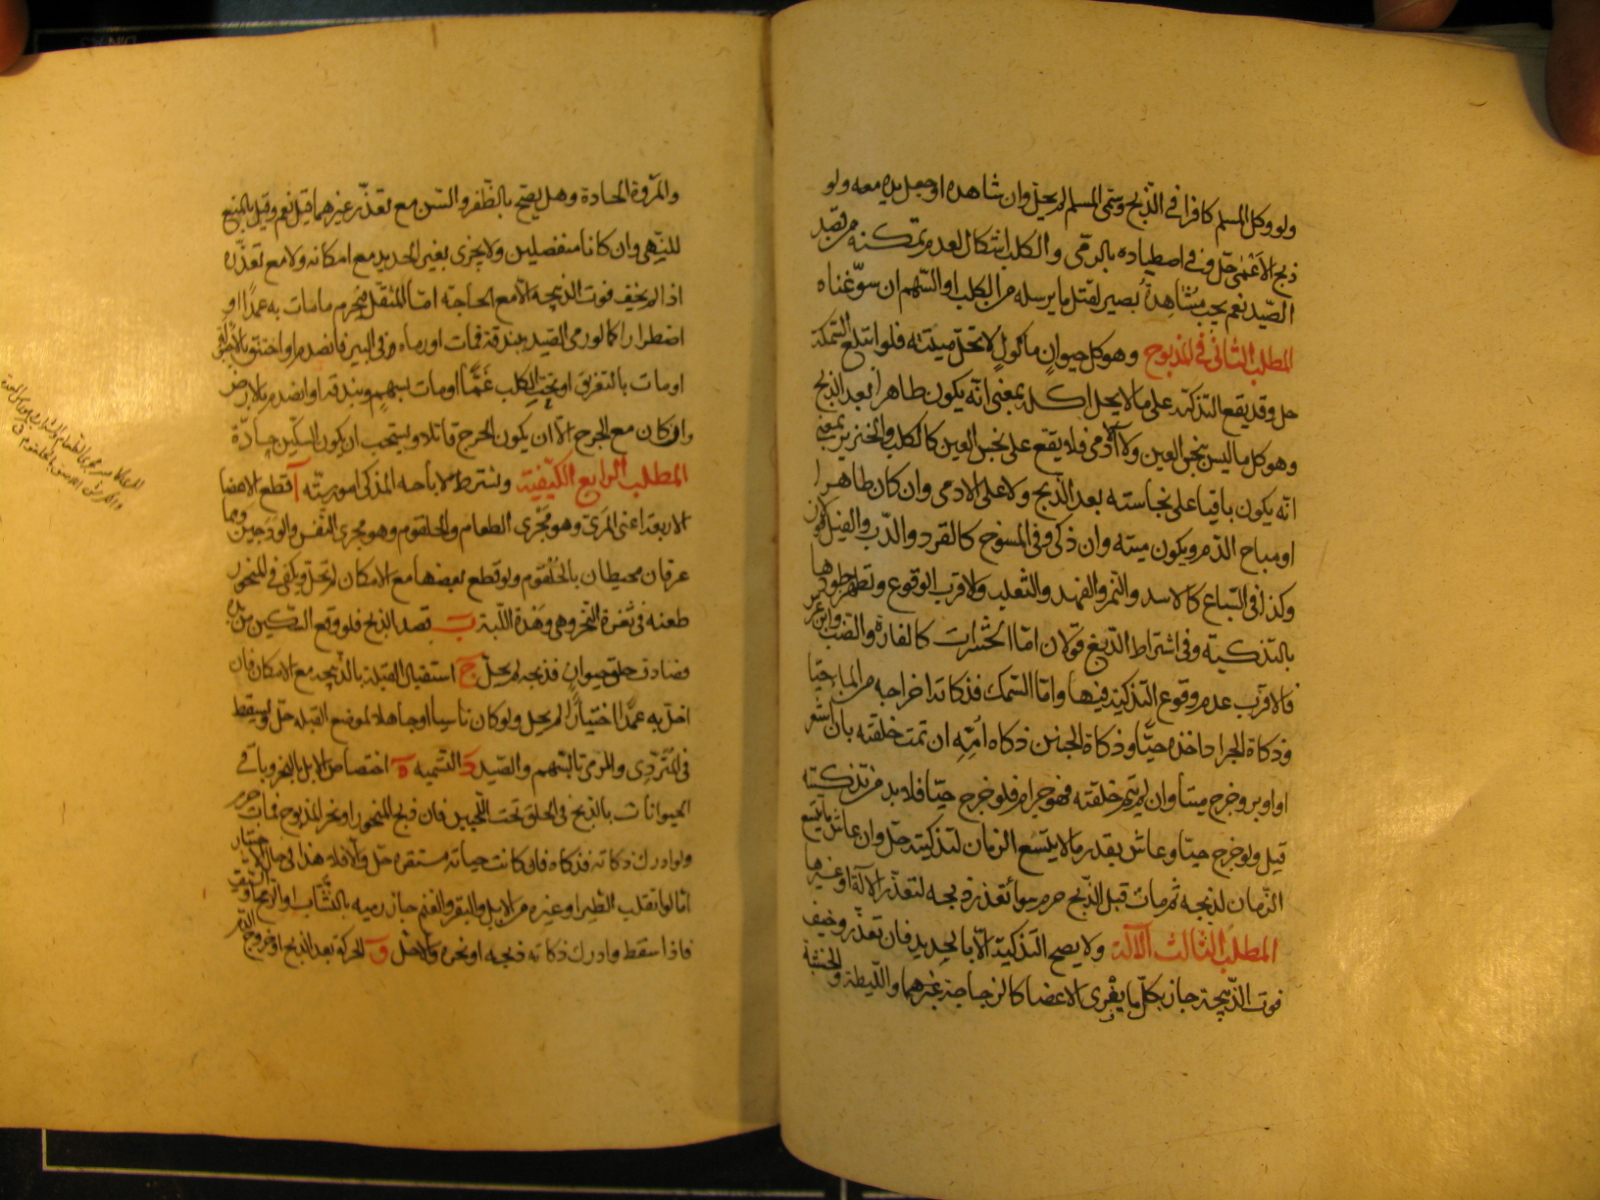 ولو وكل المسلم كافرا في الذبح وسمى المسلم لم يحل وان شاهده او جعل يده معه ولو
ذبح الاعمى حل وفي اصطياده بالرمي والكلب اشكال لعدم تمكنه من قصد
الصيد نعم يجب مشاهدة بصير لقتل ما يرسله من الكلب او السهم ان سوغناه
المطلب الثاني في المذبوح وهو كل حيوان مأكول لا تحل ميتته فلو ابتلع السمكة
حل وقد يقع التذكية على ما لا يحل اكله بمعنى انه يكون طاهرا بعد الذبح
وهو كل ما ليس بنجس العين ولا آدمي فلا يقع على نجس العين كالكلب والخنزير بمعنى
انه يكون باقيا على نجاسته بعد الذبح ولا على الادمي وان كان طاهرا
او مباح الدم ويكون ميتة وان ذكي وفي المسوخ كالقرد والدب والفيل قولان
وكذا في السباع كالاسد والنمر والفهد والثعلب والاقرب الوقوع وتطهر جلودها
بالتذكية وفي اشتراط الدبغ قولان اما الحشرات كالفارة والضب وابن عرس
فالاقرب عدم وقوع التذكية فيها واما السمك فذكاته اخراجه من الماء حيا
وذكاة الجراد اخذه حيا وذكاة الجنين ذكاة امه ان تمت خلقته بان اشعر
او اوبر وخرج ميتا وان لم يتم خلقته فهو حرام فلو خرج حيا فلا بد من تذكيته
قيل ولو خرج حيا وعاش بقدر ما لا يتسع الزمان لتذكيته حل وان عاش ما يتسع
الزمان لذبحه ثم مات قبل الذبح حرم سواء تعذر ذبحه لتعذر الالة او غيرها
المطلب الثالث الآلة ولا يصح التذكية الا بالحديد فان تعذر وخيف
فوت الذبيحة جاز بكل ما يفري الاعضا كالزجاجة وغيرهما والليطة والخشبة
والمروة الحادة وهل يصح بالظفر والسن مع تعذر غيرهما قيل نعم وقيل بالمنع
للنهي وان كانا منفصلين ولا يجزي بغير الحديد مع امكانه ولا مع تعذره
اذا لم يخف فوت الذبيحة الا مع الحاجة اما المثقل فيحرم ما مات به عمدا او
اضطرارا كما لو رمى الصيد ببندقة فمات او رماه في البير فانصدم او اختنق
او مات بالتفريق او تحت الكلب غما او مات بسهم وبندقة او انصدم بالارض
وان كان مع الجرح الا ان يكون الجرح قاتلا ويستحب ان يكون السكين حادة
المطلب الرابع الكيفية ويشترط لاباحة المذكى امور ستة آ قطع الاعضا
الاربعة اعني المري وهو مجرى الطعام والحلقوم وهو مجرى النفس والودجين وهما
عرقان محيطان بالحلقوم ولو قطع بعضها مع الامكان لم تحل ويكفي في المنحور
طعنه في ثغرة النحر وهي وهدة اللبة ب قصد الذبح فلو وقع السكين من يده
فصادف حلق حيوان فذبحه لم يحل ج استقبال القبلة بالذبيحة مع الامكان فان
اخل به عمدا اختيارا لم يحل ولو كان ناسيا او جاهلا لموضع القبله حل ويسقط
في المتردي والمرمي بالسهم والصيد د التسميه ه اختصاص الابل بالنحر وباقي
الحيوانات بالذبح في الحلق تحت اللحيين فان ذبح المنحور او نحر المذبوح فمات حرم
ولو ادرك ذكاته فذكاه فان كانت حياته مستقره حل والا فلا هذا في حال الاختيار
اما لو انفلت الطير او غيره من الابل والبقر والغنم جاز رميه بالنشاب او الرمح او السيف
فاذا سقط وادرك ذكاته ذبحه او نحره والا حل و الحركة بعد الذبح او خروج الدم